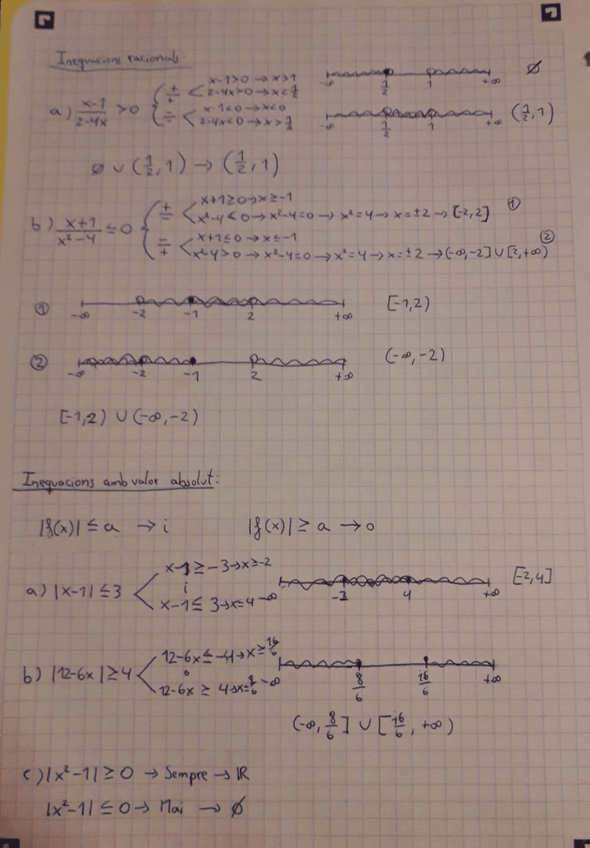 Inequacions racionals:
a) (x-1)/(2-4x) > 0 { +/+ < x-1>0 → x>1
2-4x>0 → x<1/2
-∞ 1/2 1 +∞ ∅
-/- < x-1<0 → x<0
2-4x<0 → x>1/2
-∞ 1/2 1 +∞ (1/2, 1)
∅ ∪ (1/2, 1) → (1/2, 1)
b) (x+1)/(x²-4) ≤ 0 { +/- < x+1≥0 → x≥-1
x²-4<0 → x²-4=0 → x²=4 → x=±2 → [-2,2] ①
-/+ < x+1≤0 → x≤-1
x²-4>0 → x²-4=0 → x²=4 → x=±2 → (-∞,-2] ∪ [2,+∞) ②
① -∞ -2 -1 2 +∞ [-1,2)
② -∞ -2 -1 2 +∞ (-∞,-2)
[-1,2) ∪ (-∞,-2)
Inequacions amb valor absolut:
|f(x)| ≤ a → i |f(x)| ≥ a → o
a) |x-1| ≤ 3 < x-1 ≥ -3 → x≥-2
i
x-1 ≤ 3 → x=4
-∞ -3 4 +∞ [-2,4]
b) |12-6x| ≥ 4 < 12-6x ≤ -4 → x ≥ 16/6
o
12-6x ≥ 4 → x≤ 8/6
-∞ 8/6 16/6 +∞
(-∞, 8/6] ∪ [16/6, +∞)
c) |x²-1| ≥ 0 → Sempre → ℝ
|x²-1| ≤ 0 → Mai → ∅